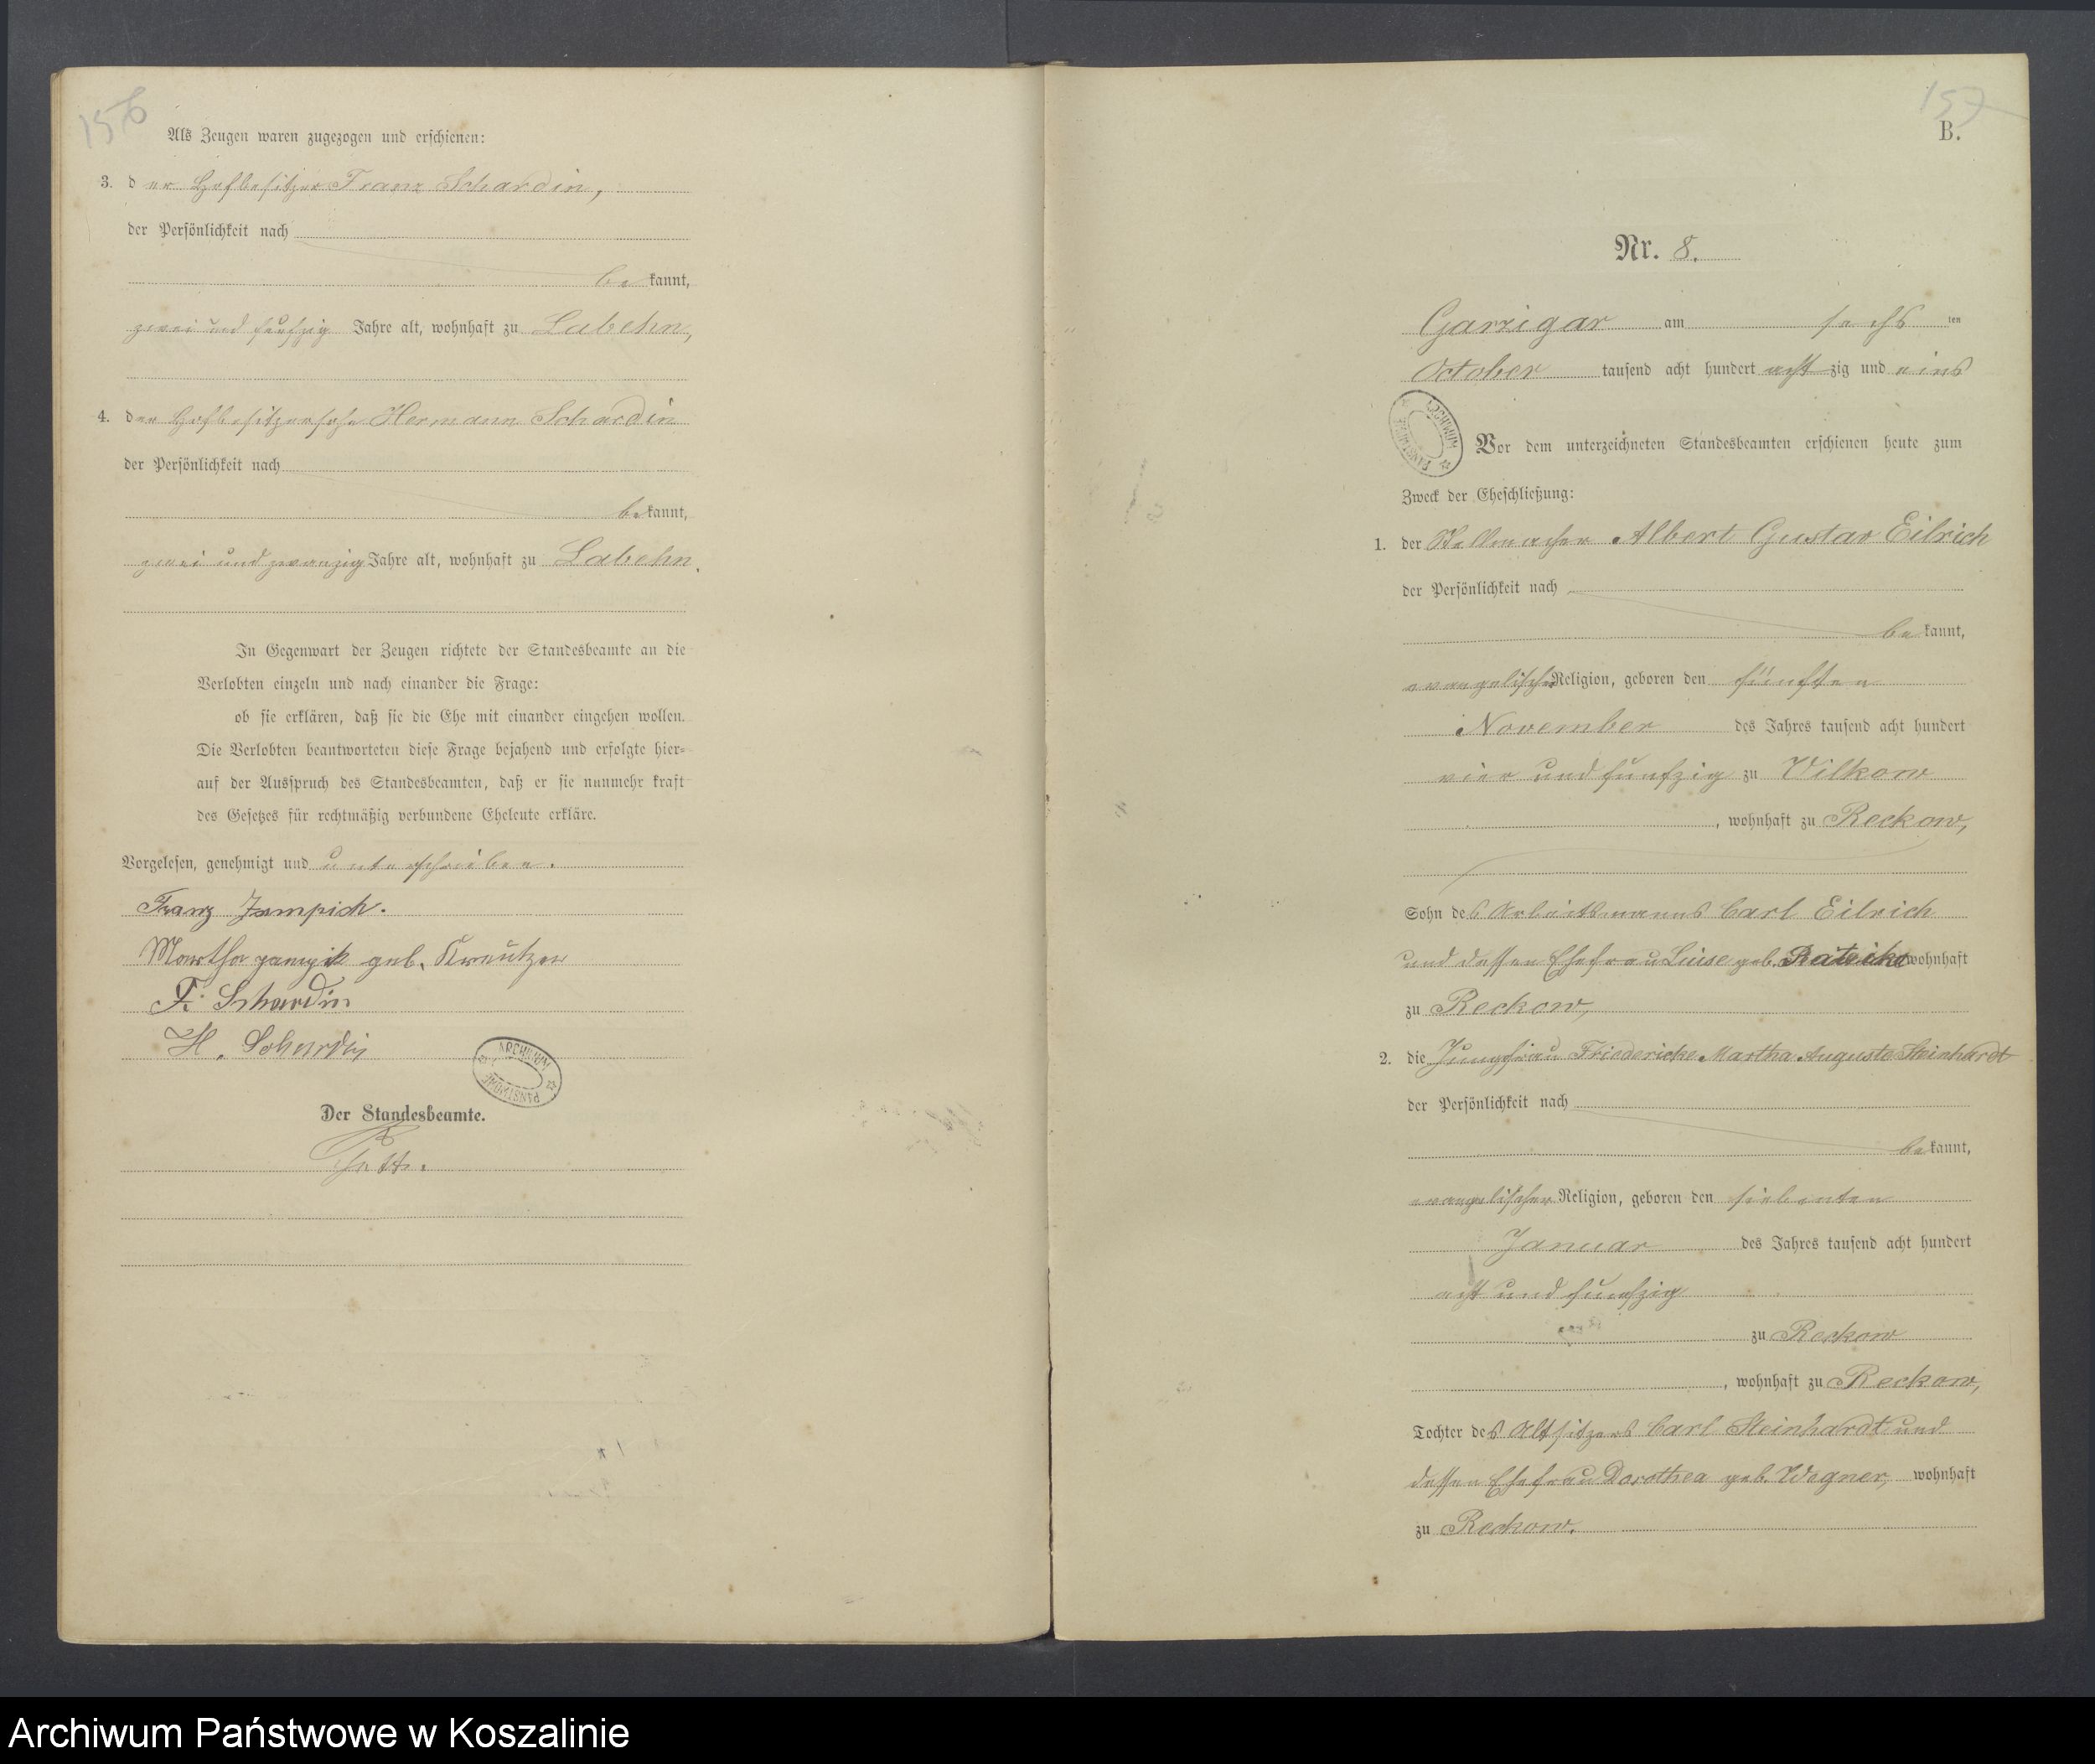 156
Als Zeugen waren zugezogen und erschienen:
3. der Hofbesitzer Franz Schardin,
der Persönlichkeit nach
bekannt,
zwei und funfzig Jahre alt, wohnhaft zu Labehn,
4. der Hofbesitzersohn Hermann Schardin
der Persönlichkeit nach
bekannt,
zwei und zwanzig Jahre alt, wohnhaft zu Labehn.
In Gegenwart der Zeugen richtete der Standesbeamte an die
Verlobten einzeln und nach einander die Frage:
ob sie erklären, daß sie die Ehe mit einander eingehen wollen.
Die Verlobten beantworteten diese Frage bejahend und erfolgte hier-
auf der Ausspruch des Standesbeamten, daß er sie nunmehr kraft
des Gesetzes für rechtmäßig verbundene Eheleute erkläre.
Vorgelesen, genehmigt und unterschrieben.
Franz Jampich.
Martha Jampik geb. Kreutzer
F. Schardin
H. Schardin
ARCHIWUM PAŃSTWOWE
Der Standesbeamte.
157
B.
Nr. 8.
Garzigar am sechsten
October tausend acht hundert achtzig und eins
ARCHIWUM PAŃSTWOWE
Vor dem unterzeichneten Standesbeamten erschienen heute zum
Zweck der Eheschließung:
1. der Stellmacher Albert Gustav Eilrich
der Persönlichkeit nach
bekannt,
evangelischer Religion, geboren den fünften
November des Jahres tausend acht hundert
vier und funfzig zu Vilkow
, wohnhaft zu Reckow,
Sohn des Arbeitsmanns Carl Eilrich
und dessen Ehefrau Luise geb. wohnhaft
zu Reckow,
2. die Jungfrau Friedericke Martha Auguste Steinhardt
der Persönlichkeit nach
bekannt,
evangelischer Religion, geboren den siebenten
Januar des Jahres tausend acht hundert
acht und funfzig
zu Reckow
, wohnhaft zu Reckow,
Tochter des Altsitzers Carl Steinhardt und
dessen Ehefrau Dorothea geb. Wegner, wohnhaft
zu Reckow.
Archiwum Państwowe w Koszalinie